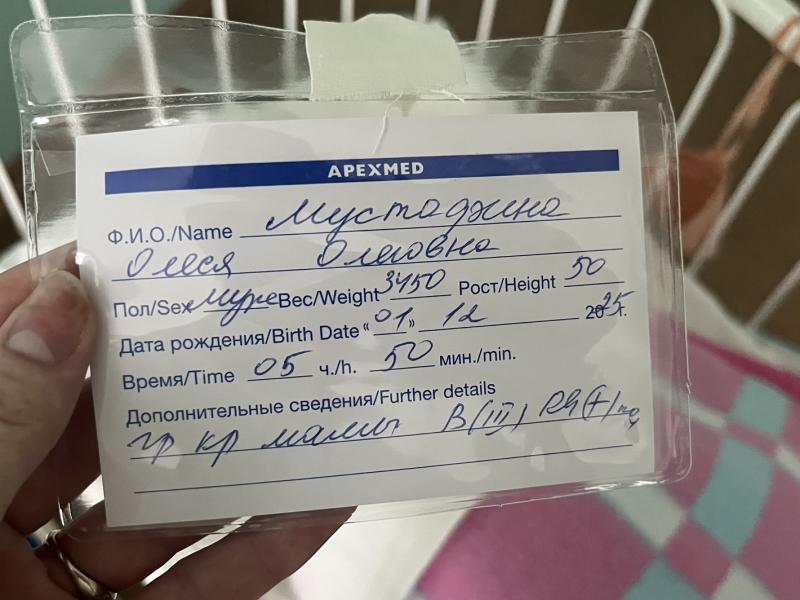 APEXMED
Ф.И.О./Name Мустаджина
Олеся Олеговна
Пол/Sex муж Вес/Weight 3450 Рост/Height 50
Дата рождения/Birth Date "01" 12 2025г.
Время/Time 05 ч./h. 50 мин./min.
Дополнительные сведения/Further details
гр кр мамы B(III) Rh(+)